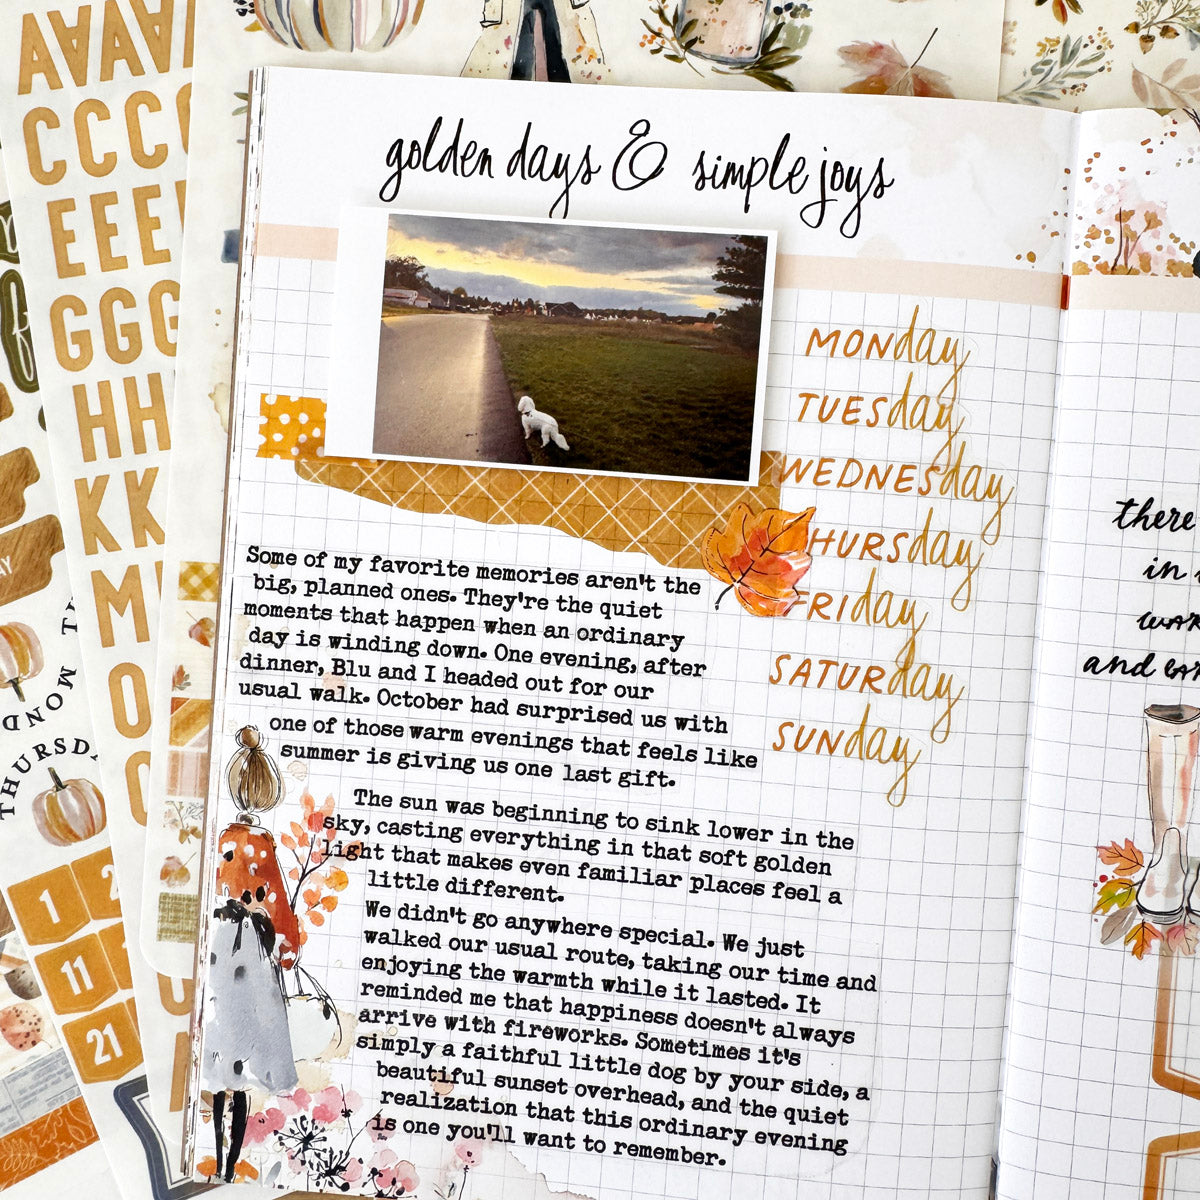 golden days & simple joys
MONday
TUESday
WEDNESday
THURSday
FRIday
SATURday
SUNday
Some of my favorite memories aren't the
big, planned ones. They're the quiet
moments that happen when an ordinary
day is winding down. One evening, after
dinner, Blu and I headed out for our
usual walk. October had surprised us with
one of those warm evenings that feels like
summer is giving us one last gift.
The sun was beginning to sink lower in the
sky, casting everything in that soft golden
light that makes even familiar places feel a
little different.
We didn't go anywhere special. We just
walked our usual route, taking our time and
enjoying the warmth while it lasted. It
reminded me that happiness doesn't always
arrive with fireworks. Sometimes it's
simply a faithful little dog by your side, a
beautiful sunset overhead, and the quiet
realization that this ordinary evening
is one you'll want to remember.
there
in
and
AAAA
CCCC
EEEE
GGG
HH
KK
M
O
THURSD
MOND
1
2
11
21